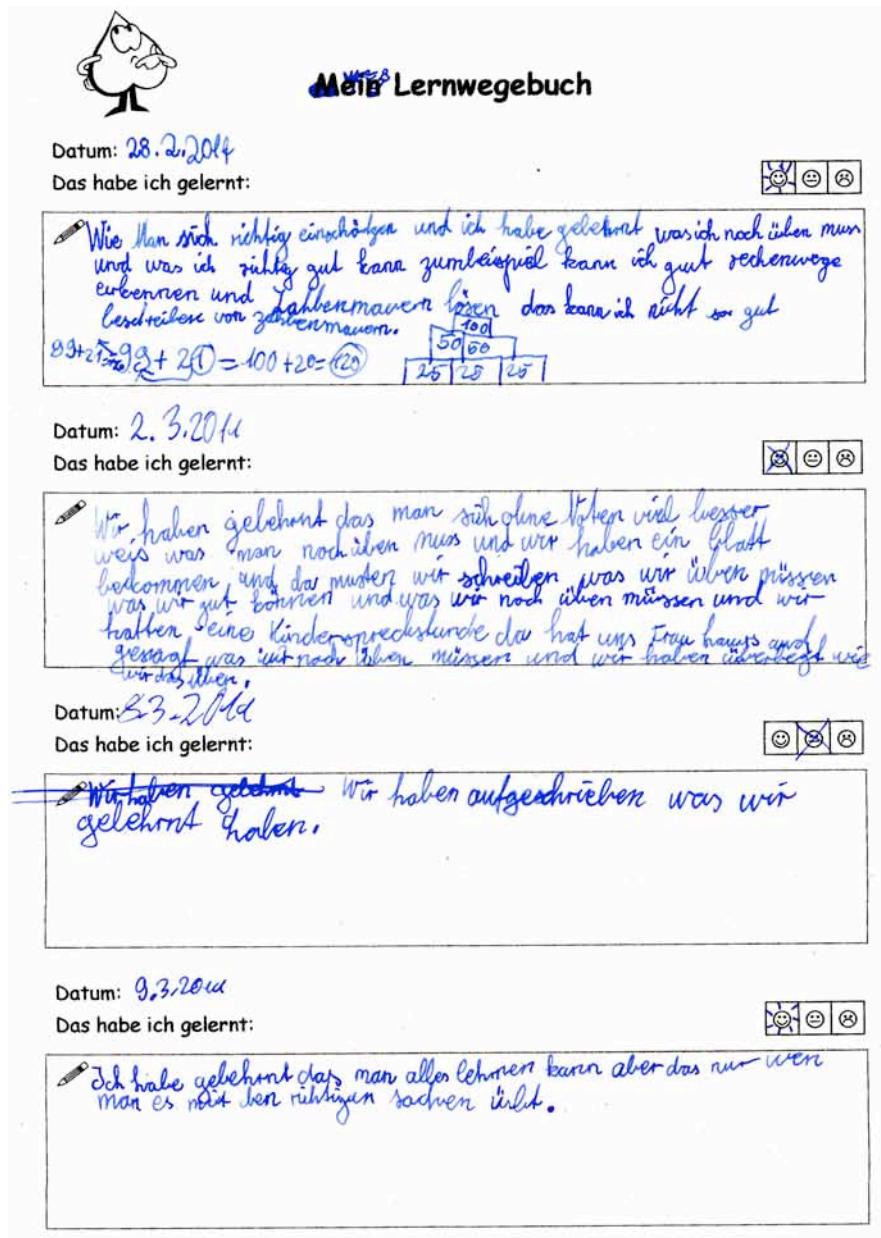 Mein Lernwegebuch
Datum: 28.2.2011
Das habe ich gelernt:
Wie Man sich richtig einschätzen und ich habe gelehrnt was ich noch üben muss
und was ich richtig gut kann zumbeispiel kann ich gut rechenwege
erkennen und Zahlenmauern lösen das kann ich nicht so gut
beschreiben von zahlenmauern.
100
50 50
99+21= 99+21=100+20=120
25 25 25
Datum: 2.3.2011
Das habe ich gelernt:
Wir haben gelehrnt das man sich ohne Noten viel besser
weis was man noch üben muss und wir haben ein Blatt
bekommen und da musten wir schreiben was wir üben müssen
was wir gut können und was wir noch üben müssen und wir
hatten eine Kindersprechstunde da hat uns Frau
gesagt was wir noch üben müssen und wir haben überlegt wie
wir das üben.
Datum: 8.3.2011
Das habe ich gelernt:
Wir haben gelehrnt Wir haben aufgeschrieben was wir
gelehrnt haben.
Datum: 9.3.2011
Das habe ich gelernt:
Ich habe gelehrnt das man alles lehrnen kann aber das nur wen
man es mit den richtigen sachen übt.